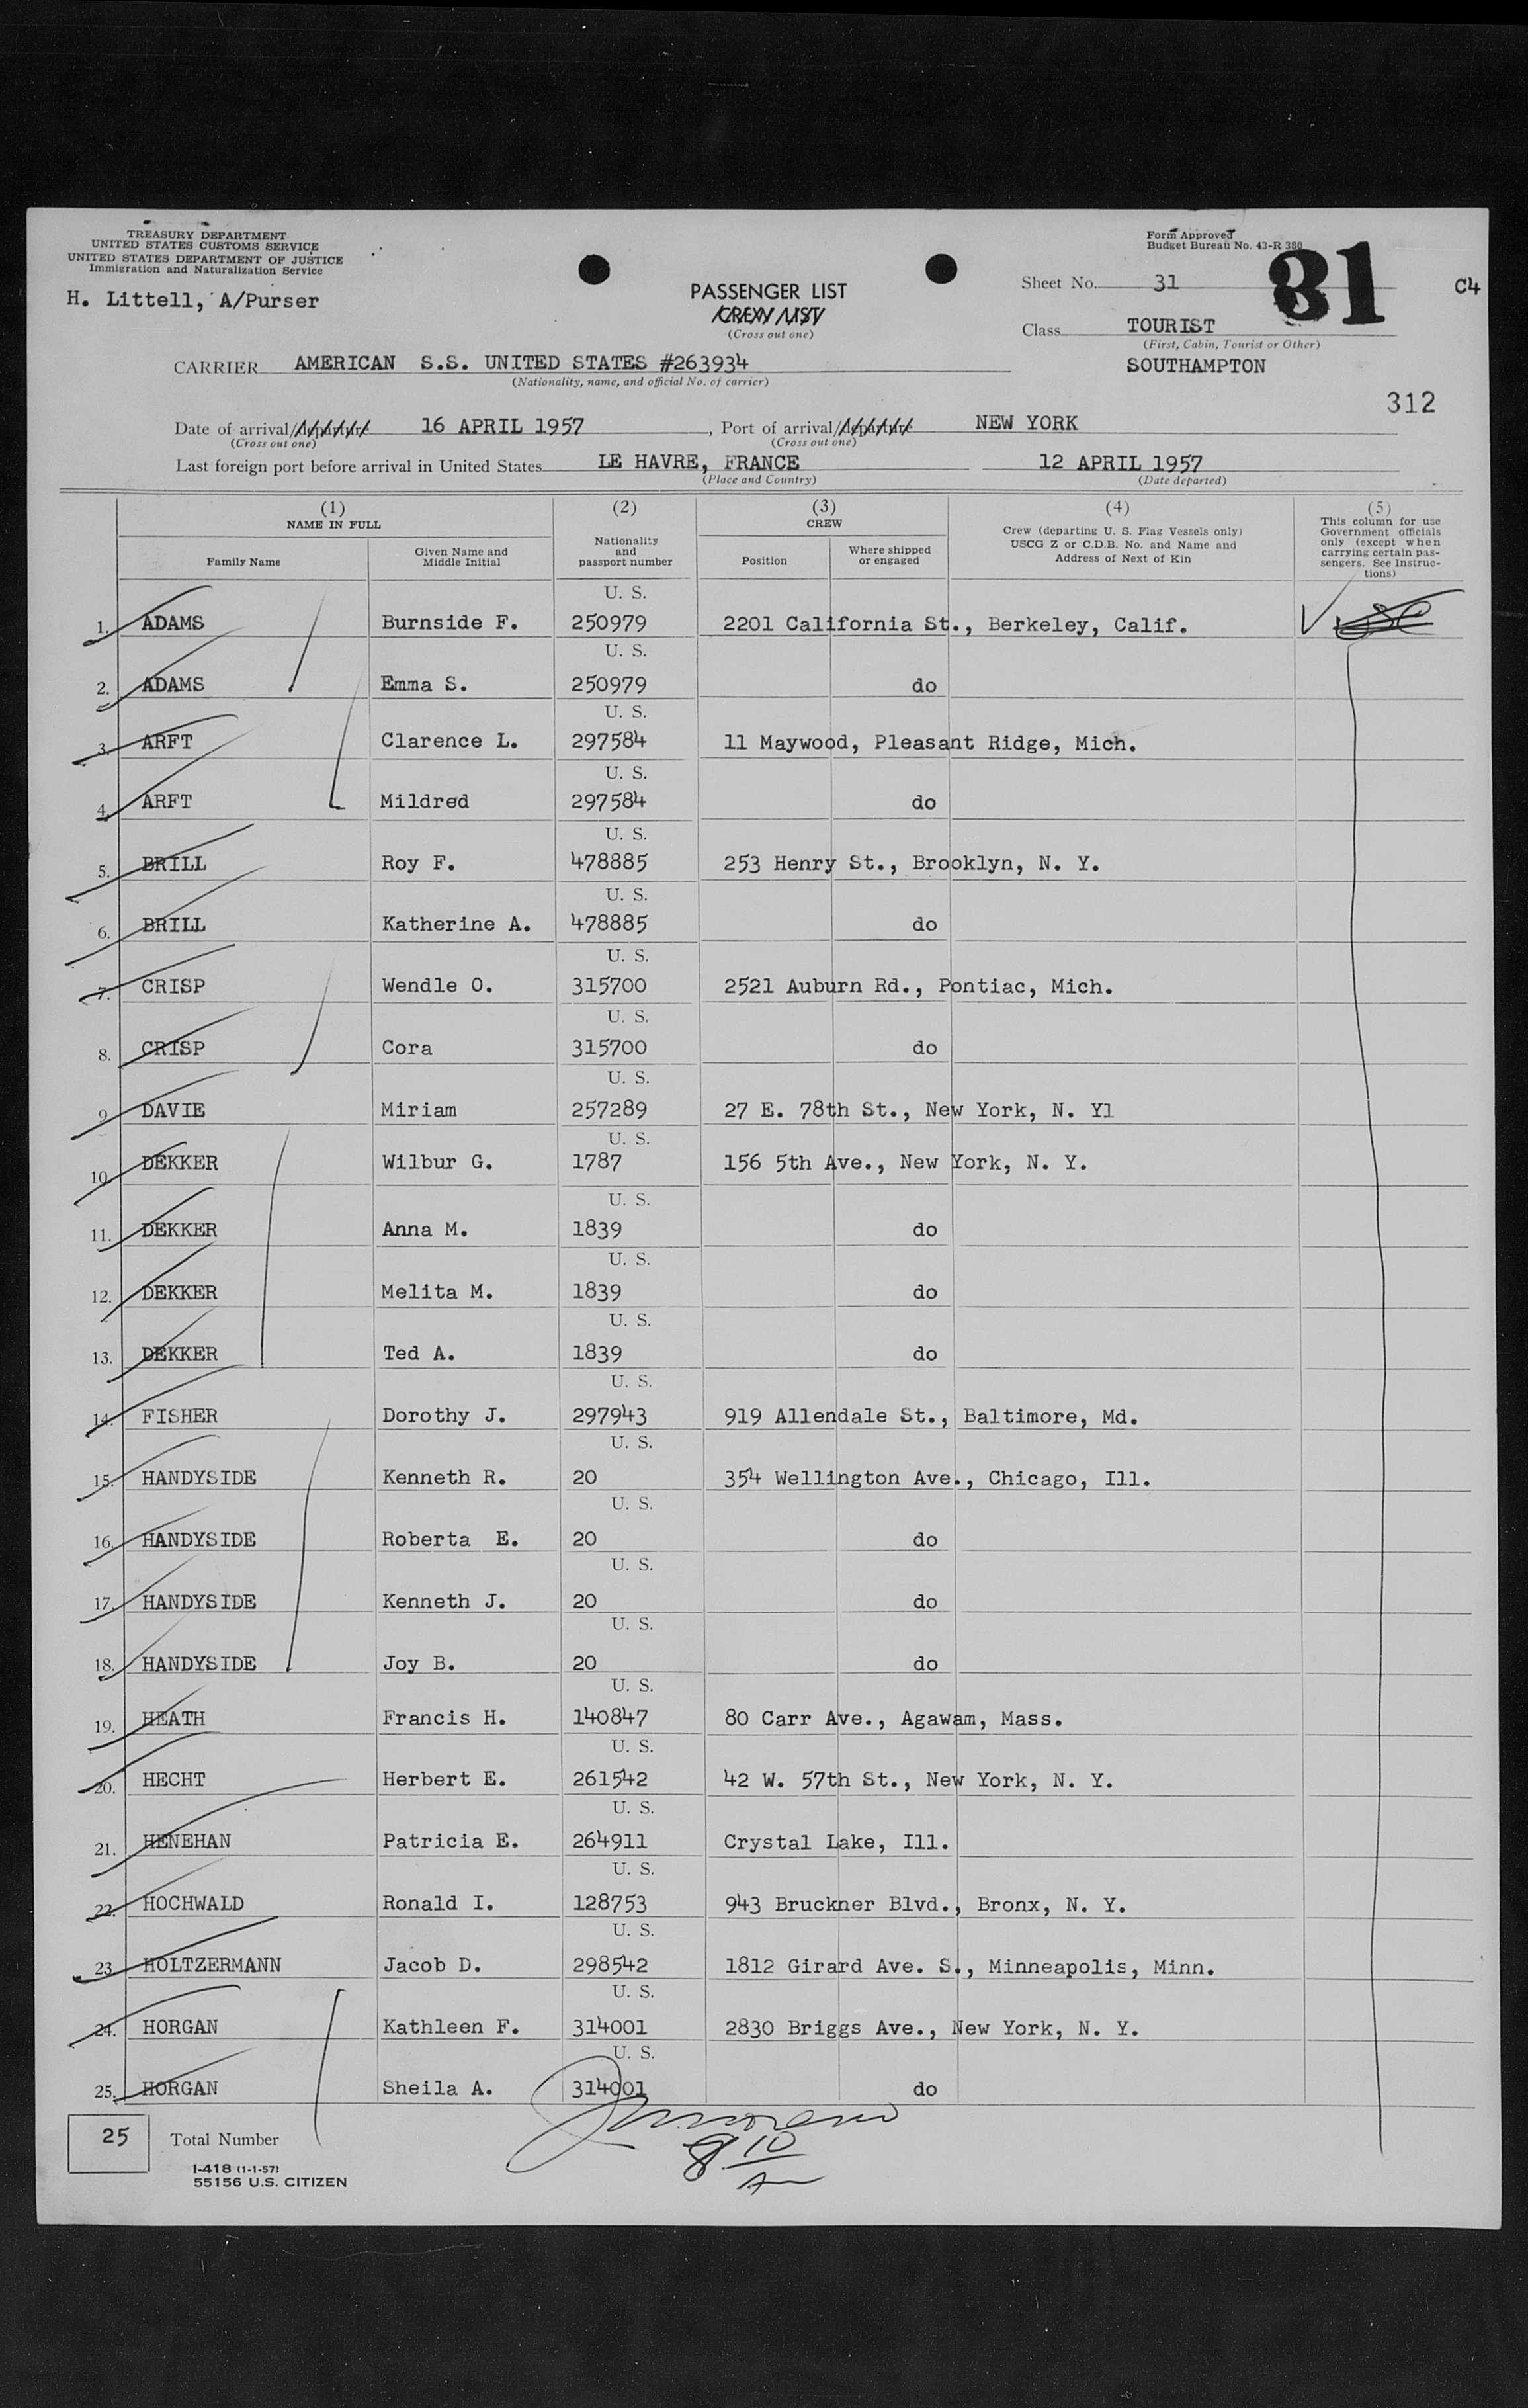 TREASURY DEPARTMENT
UNITED STATES CUSTOMS SERVICE
UNITED STATES DEPARTMENT OF JUSTICE
Immigration and Naturalization Service
H. Littell, A/Purser
PASSENGER LIST
CREW LIST
(Cross out one)
Form Approved
Budget Bureau No. 43-R 380
Sheet No. 31
31
C4
Class TOURIST
(First, Cabin, Tourist or Other)
SOUTHAMPTON
CARRIER AMERICAN S.S. UNITED STATES #263934
(Nationality, name, and official No. of carrier)
312
Date of arrival/ 16 APRIL 1957, Port of arrival/ NEW YORK
(Cross out one) (Cross out one)
Last foreign port before arrival in United States LE HAVRE, FRANCE 12 APRIL 1957
(Place and Country) (Date departed)
(1) NAME IN FULL
Family Name
Given Name and Middle Initial
(2)
Nationality and passport number
(3) CREW
Position
Where shipped or engaged
(4)
Crew (departing U. S. Flag Vessels only)
USCG Z or C.D.B. No. and Name and
Address of Next of Kin
(5)
This column for use
Government officials
only (except when
carrying certain pas-
sengers. See Instruc-
tions)
U. S.
1. ADAMS Burnside F. 250979 2201 California St., Berkeley, Calif.
U. S.
2. ADAMS Emma S. 250979 do
U. S.
3. ARFT Clarence L. 297584 11 Maywood, Pleasant Ridge, Mich.
U. S.
4. ARFT Mildred 297584 do
U. S.
5. BRILL Roy F. 478885 253 Henry St., Brooklyn, N. Y.
U. S.
6. BRILL Katherine A. 478885 do
U. S.
7. CRISP Wendle O. 315700 2521 Auburn Rd., Pontiac, Mich.
U. S.
8. CRISP Cora 315700 do
U. S.
9. DAVIE Miriam 257289 27 E. 78th St., New York, N. Yl
U. S.
10. DEKKER Wilbur G. 1787 156 5th Ave., New York, N. Y.
U. S.
11. DEKKER Anna M. 1839 do
U. S.
12. DEKKER Melita M. 1839 do
U. S.
13. DEKKER Ted A. 1839 do
U. S.
14. FISHER Dorothy J. 297943 919 Allendale St., Baltimore, Md.
U. S.
15. HANDYSIDE Kenneth R. 20 354 Wellington Ave., Chicago, Ill.
U. S.
16. HANDYSIDE Roberta E. 20 do
U. S.
17. HANDYSIDE Kenneth J. 20 do
U. S.
18. HANDYSIDE Joy B. 20 do
U. S.
19. HEATH Francis H. 140847 80 Carr Ave., Agawam, Mass.
U. S.
20. HECHT Herbert E. 261542 42 W. 57th St., New York, N. Y.
U. S.
21. HENEHAN Patricia E. 264911 Crystal Lake, Ill.
U. S.
22. HOCHWALD Ronald I. 128753 943 Bruckner Blvd., Bronx, N. Y.
U. S.
23. HOLTZERMANN Jacob D. 298542 1812 Girard Ave. S., Minneapolis, Minn.
U. S.
24. HORGAN Kathleen F. 314001 2830 Briggs Ave., New York, N. Y.
U. S.
25. HORGAN Sheila A. 314001 do
25 Total Number
I-418 (1-1-57)
55156 U.S. CITIZEN